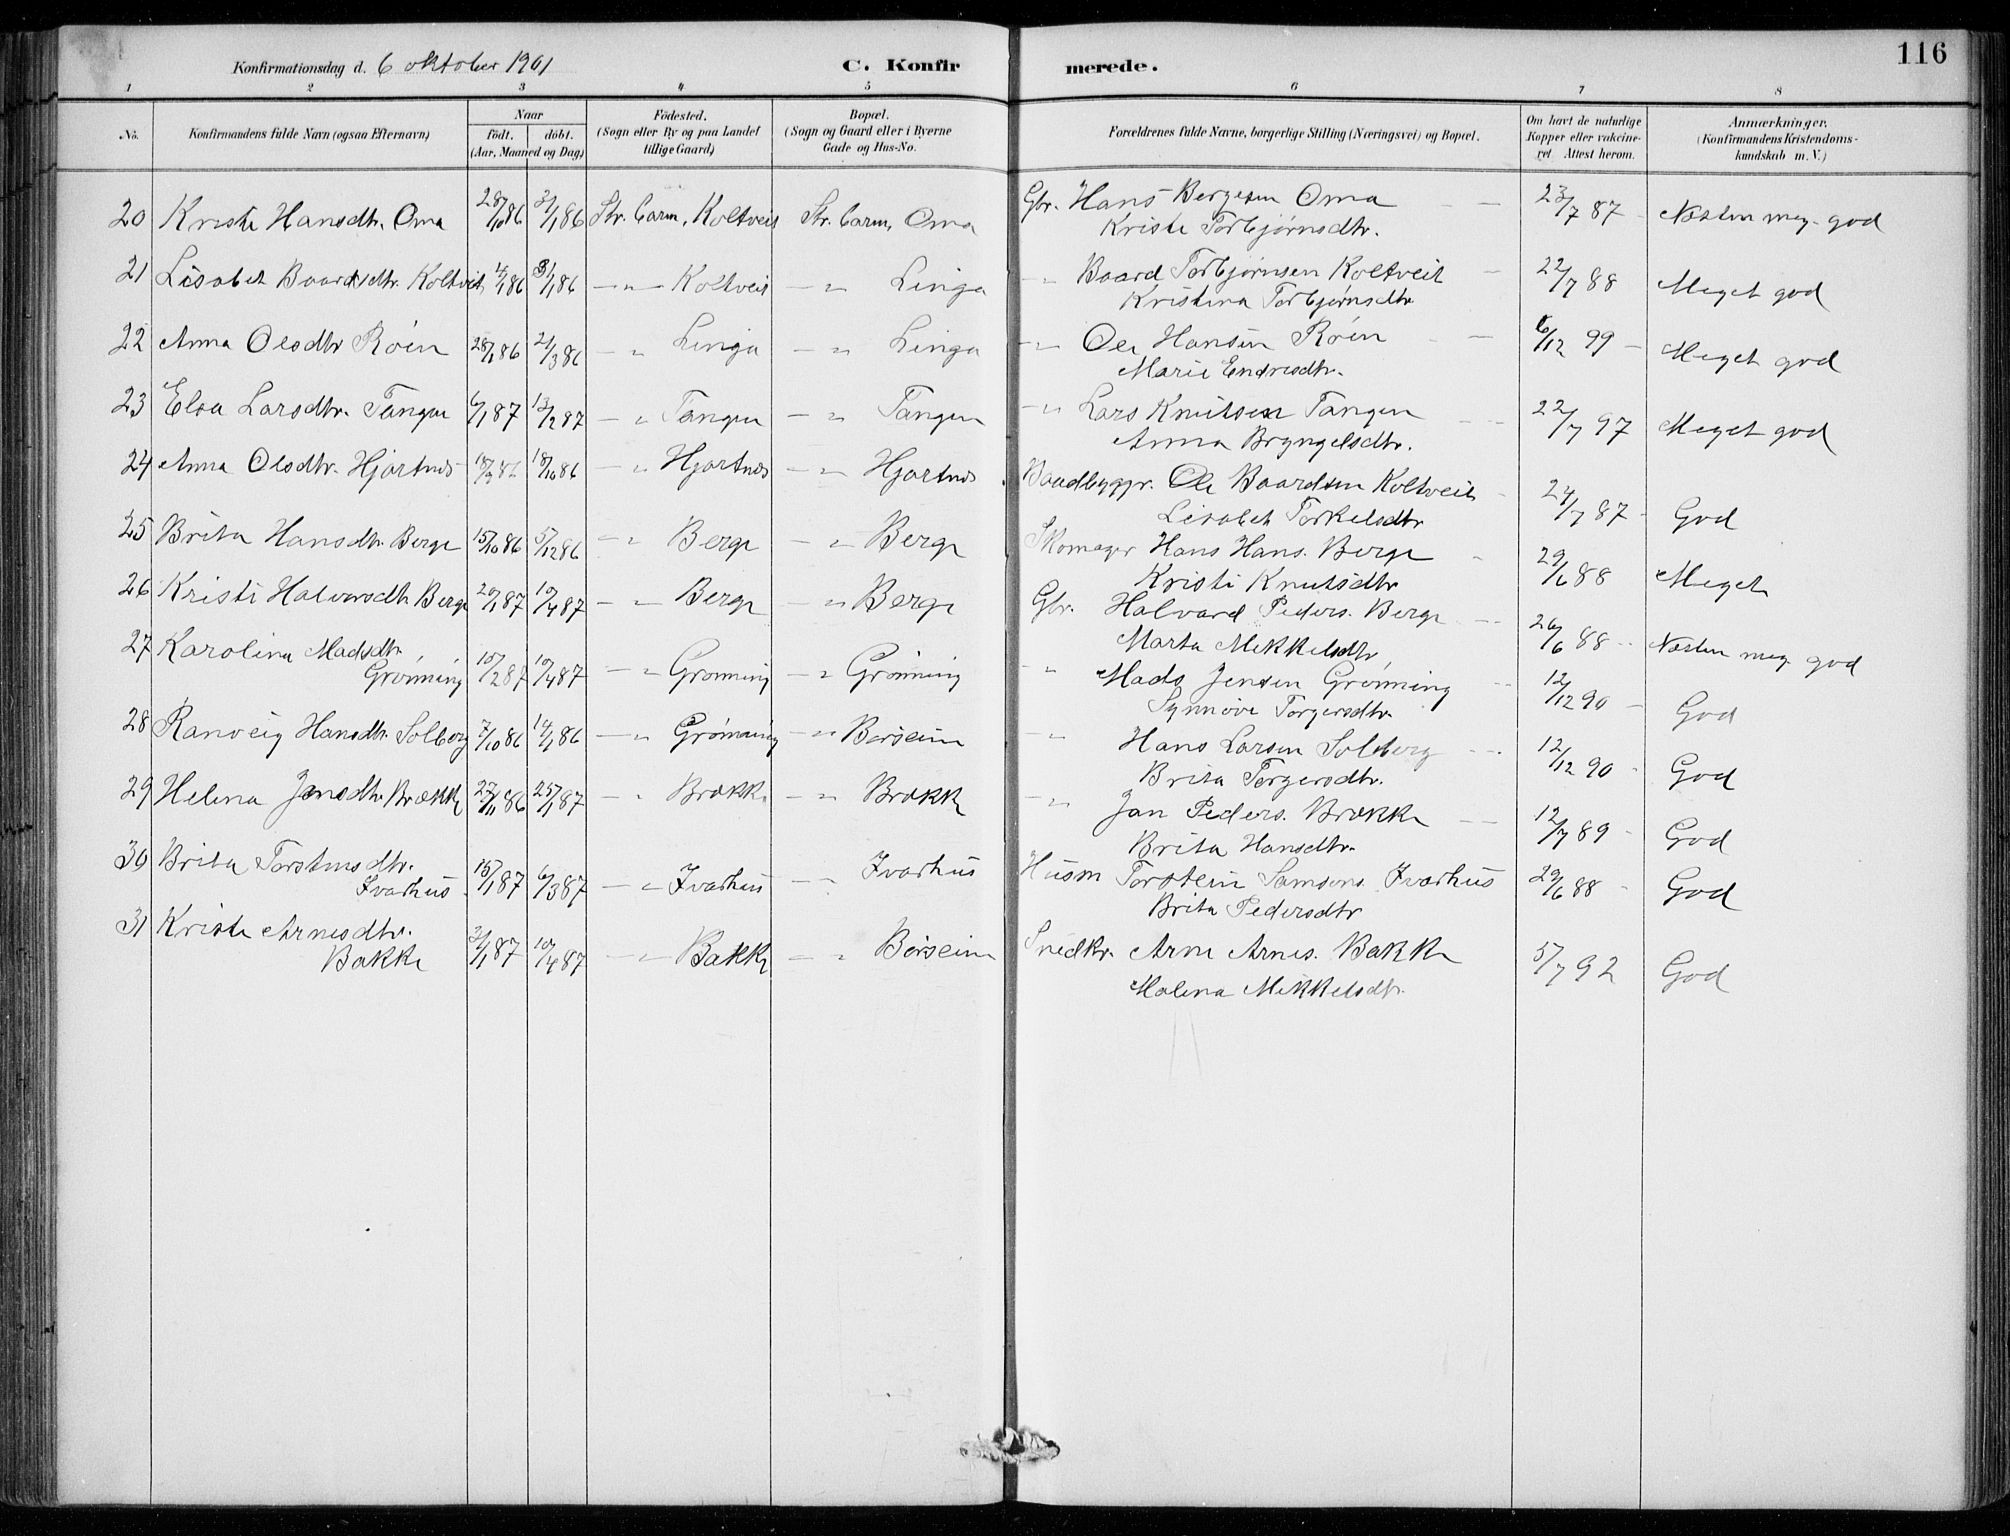 116
Konfirmationsdag d. 6 oktober 1901 C. Konfirmerede.
1 2 3 4 5 6 7 8
No. Konfirmandens fulde Navn (ogsaa Efternavn) Naar født. døbt. (Aar, Maaned og Dag) Fødested. (Sogn eller By og paa Landet tillige Gaard) Bopæl. (Sogn og Gaard eller i Byerne Gade og Hus-No. Forældrenes fulde Navne, borgerlige Stilling (Næringsvei) og Bopæl. Om havt de naturlige Kopper eller vakcineret Attest herom. Anmærkninger. (Konfirmandens Kristendomskundskab m. V.)
20 Kristi Hansdtr. Oma 28/10 86 2/1 86 Str. barm, Koltveit Str. barm, Oma Gbr. Hans Bergesen Oma 23/7 87 Næsten meg. god
Kristi Torbjørnsdtr.
21 Lisabet Baardsdtr. Koltveit 4/1 86 31/1 86 — " — Koltveit — " Linga " Baard Torbjørnsen Koltveit 22/7 88 Meget god
Kristina Torbjørnsdtr
22 Anna Olsdtr Röen 28/1 86 21/3 86 — " Linga — " Linga — " Ole Hansen Röen 6/12 99 Meget god
Marie Endresdtr.
23 Elsa Larsdtr. Tangen 6/1 87 13/2 87 — " Tangen — " Tangen — " Lars Knutsen Tangen 22/7 97 Meget god
Anna Bryngelsdtr.
24 Anna Olsdtr. Hjartnes 18/10 86 — " Hjartnes — " Hjartnes Baadbyggr. Ole Baardsen Koltveit 24/7 87 God
Lisabet Torkelsdtr
25 Brita Hansdtr Berge 15/10 86 5/12 86 — " Berge — " Berge Skomager Hans Hans. Berge 29/6 88 Meget
Kristi Knutsdtr
26 Kristi Halvorsdtr Berge 20/1 87 10/4 87 — " Berge — " Berge Gbr. Halvard Peders. Berge 26/6 88 Næsten meg. god
Marta Mikkelsdtr
27 Karolina Madsdtr.
Grönning 15/2 87 10/4 87 — " Grönning — " Grönning " Mads Jensen Grönning 12/12 90 God
Synnöve Torgersdtr.
28 Ranveig Hansdtr. Solberg 7/10 86 14/1 86 — " Grönning — " Börseim — " Hans Larsen Solberg 12/12 90 God
Brita Torgersdtr.
29 Helena Jansdtr. Brække 27/11 86 25/1 87 — " Brække — " Brække — " Jan Peders. Brække 12/7 89 God
Brita Hansdtr.
30 Brita Torstensdtr.
Ivarhus 15/1 87 6/3 87 — " Ivarhus — " Ivarhus Husm Torstein Samsons. Ivarhus 29/6 88 God
Brita Pedersdtr
31 Kristi Arnesdtr.
Bakke 3/1 87 10/4 87 — " Bakke — " Börseim Snedkr. Arne Arnes. Bakke 5/7 92 God
Malena Mikkelsdtr.